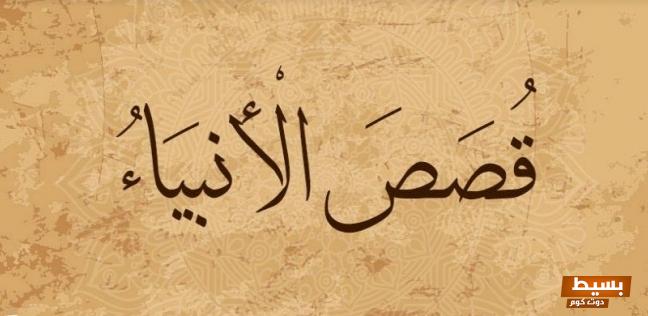 قُصَصَ الْأَنبِيَاءُ
بسيط
دوت كوم